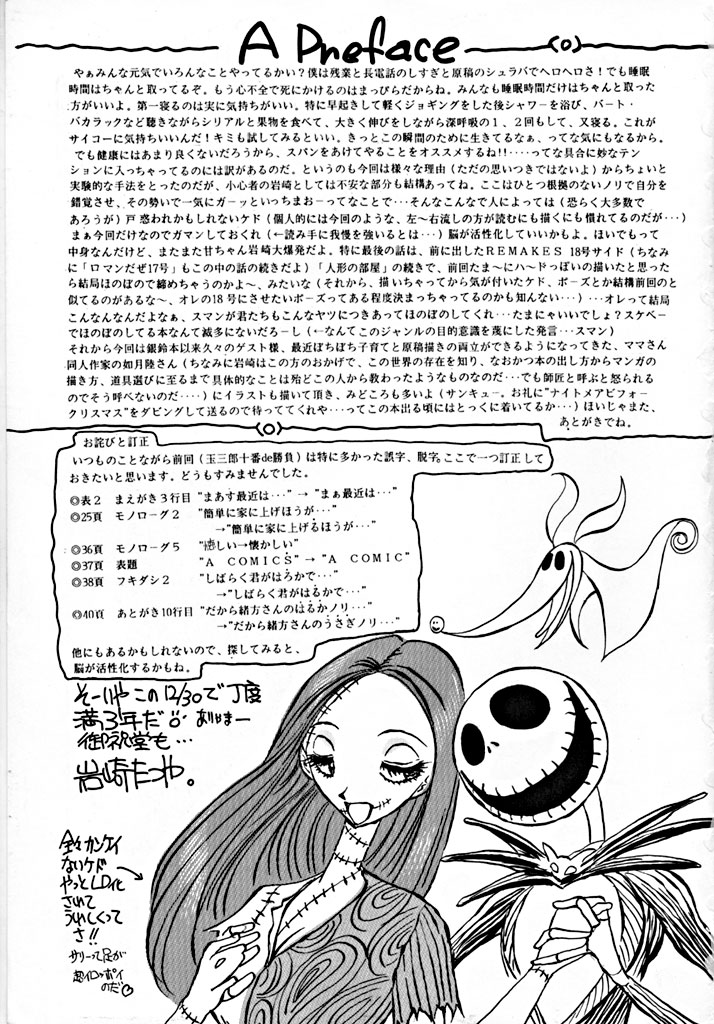 A Preface
やぁみんな元気でいろんなことやってるかい？僕は残業と長電話のしすぎと原稿のシュラバでヘロヘロさ！でも睡眠
時間はちゃんと取ってるぞ。もう心不全で死にかけるのはまっぴらだからね。みんなも睡眠時間だけはちゃんと取った
方がいいよ。第一寝るのは実に気持ちがいい。特に早起きして軽くジョギングをした後シャワーを浴び、バート・
バカラックなど聴きながらシリアルと果物を食べて、大きく伸びをしながら深呼吸の１、２回もして、又寝る。これが
サイコーに気持ちいいんだ！キミも試してみるといい。きっとこの瞬間のために生きてるなぁ、ってな気にもなるから。
でも健康にはあまり良くないだろうから、スパンをあけてやることをオススメするね!!‥‥ってな具合に妙なテン
ションに入っちゃってるのには訳があるのだ。というのも今回は様々な理由（ただの思いつきではないよ）からちょいと
実験的な手法をとったのだが、小心者の岩崎としては不安な部分も結構あってね。ここはひとつ根拠のないノリで自分を
錯覚させ、その勢いで一気にガーッといっちまおーってなことで‥‥そんなこんなで人によっては（恐らく大多数で
あろうが）戸惑われかもしれないケド（個人的には今回のような、左〜右流しの方が読むにも描くにも慣れてるのだが…）
まぁ今回だけなのでガマンしておくれ（←読み手に我慢を強いるとは…）脳が活性化していいかもよ。ほいでもって
中身なんだけど、またまた甘ちゃん岩崎大爆発だよ。特に最後の話は、前に出したＲＥＭＡＫＥＳ 18号サイド（ちなみ
に「ロマンだぜ17号」もこの中の話の続きだよ）「人形の部屋」の続きで、前回たま〜にハ〜ドっぽいの描いたと思った
ら結局ほのぼので締めちゃうのかよ〜、みたいな（それから、描いちゃってから気が付いたケド、ポーズとか結構前回のと
似てるのがあるな〜、オレの18号にさせたいポーズってある程度決まっちゃってるのかも知んない…）…オレって結局
こんなんなんだよなぁ、スマンが君たちもこんなヤツにつきあってほのぼのしてくれ…たまにゃいいでしょ？スケベー
でほのぼのしてる本なんて滅多にないだろーし（←なんてこのジャンルの目的意識を蔑にした発言…スマン）
それから今回は銀鈴本以来久々のゲスト様、最近ぼちぼち子育てと原稿描きの両立ができるようになってきた、ママさん
同人作家の如月陸さん（ちなみに岩崎はこの方のおかげで、この世界の存在を知り、なおかつ本の出し方からマンガの
描き方、道具選びに至るまで具体的なことは殆どこの人から教わったようなものなのだ…でも師匠と呼ぶと怒られる
のでそう呼べないのだ‥‥）にイラストも描いて頂き、みどころも多いよ（サンキュー。お礼に“ナイトメアビフォー
クリスマス”をダビングして送るので待っててくれや…ってこの本出る頃にはとっくに着いてるか…）ほいじゃまた、
あとがきでね。
お詫びと訂正
いつものことながら前回（玉三郎十番de勝負）は特に多かった誤字、脱字、ここで一つ訂正して
おきたいと思います。どうもすみませんでした。
◎表２　まえがき３行目　“まあす最近は…”→“まぁ最近は…”
◎25頁　モノローグ２　“簡単に家に上げほうが…”
→“簡単に家に上げるほうが…”
◎36頁　モノローグ５　“しい→懐かしい”
◎37頁　表題　“Ａ ＣＯＭＩＣＳ”→“Ａ ＣＯＭＩＣ”
◎38頁　フキダシ２　“しばらく君がはろかで…”
→“しばらく君がはるかで…”
◎40頁　あとがき10行目　“だから緒方さんのはるかノリ…”
→“だから緒方さんのうさぎノリ…”
他にもあるかもしれないので、探してみると、
脳が活性化するかもね。
そーいや この12/30で丁度
満3年だ おりはまー
御祝堂も…
岩崎たつや。
全々カンケイ
ないケド
やっとLD化
されて
うれしくって
さ!!
サリーって足が
超イロッポイ
のだ♡